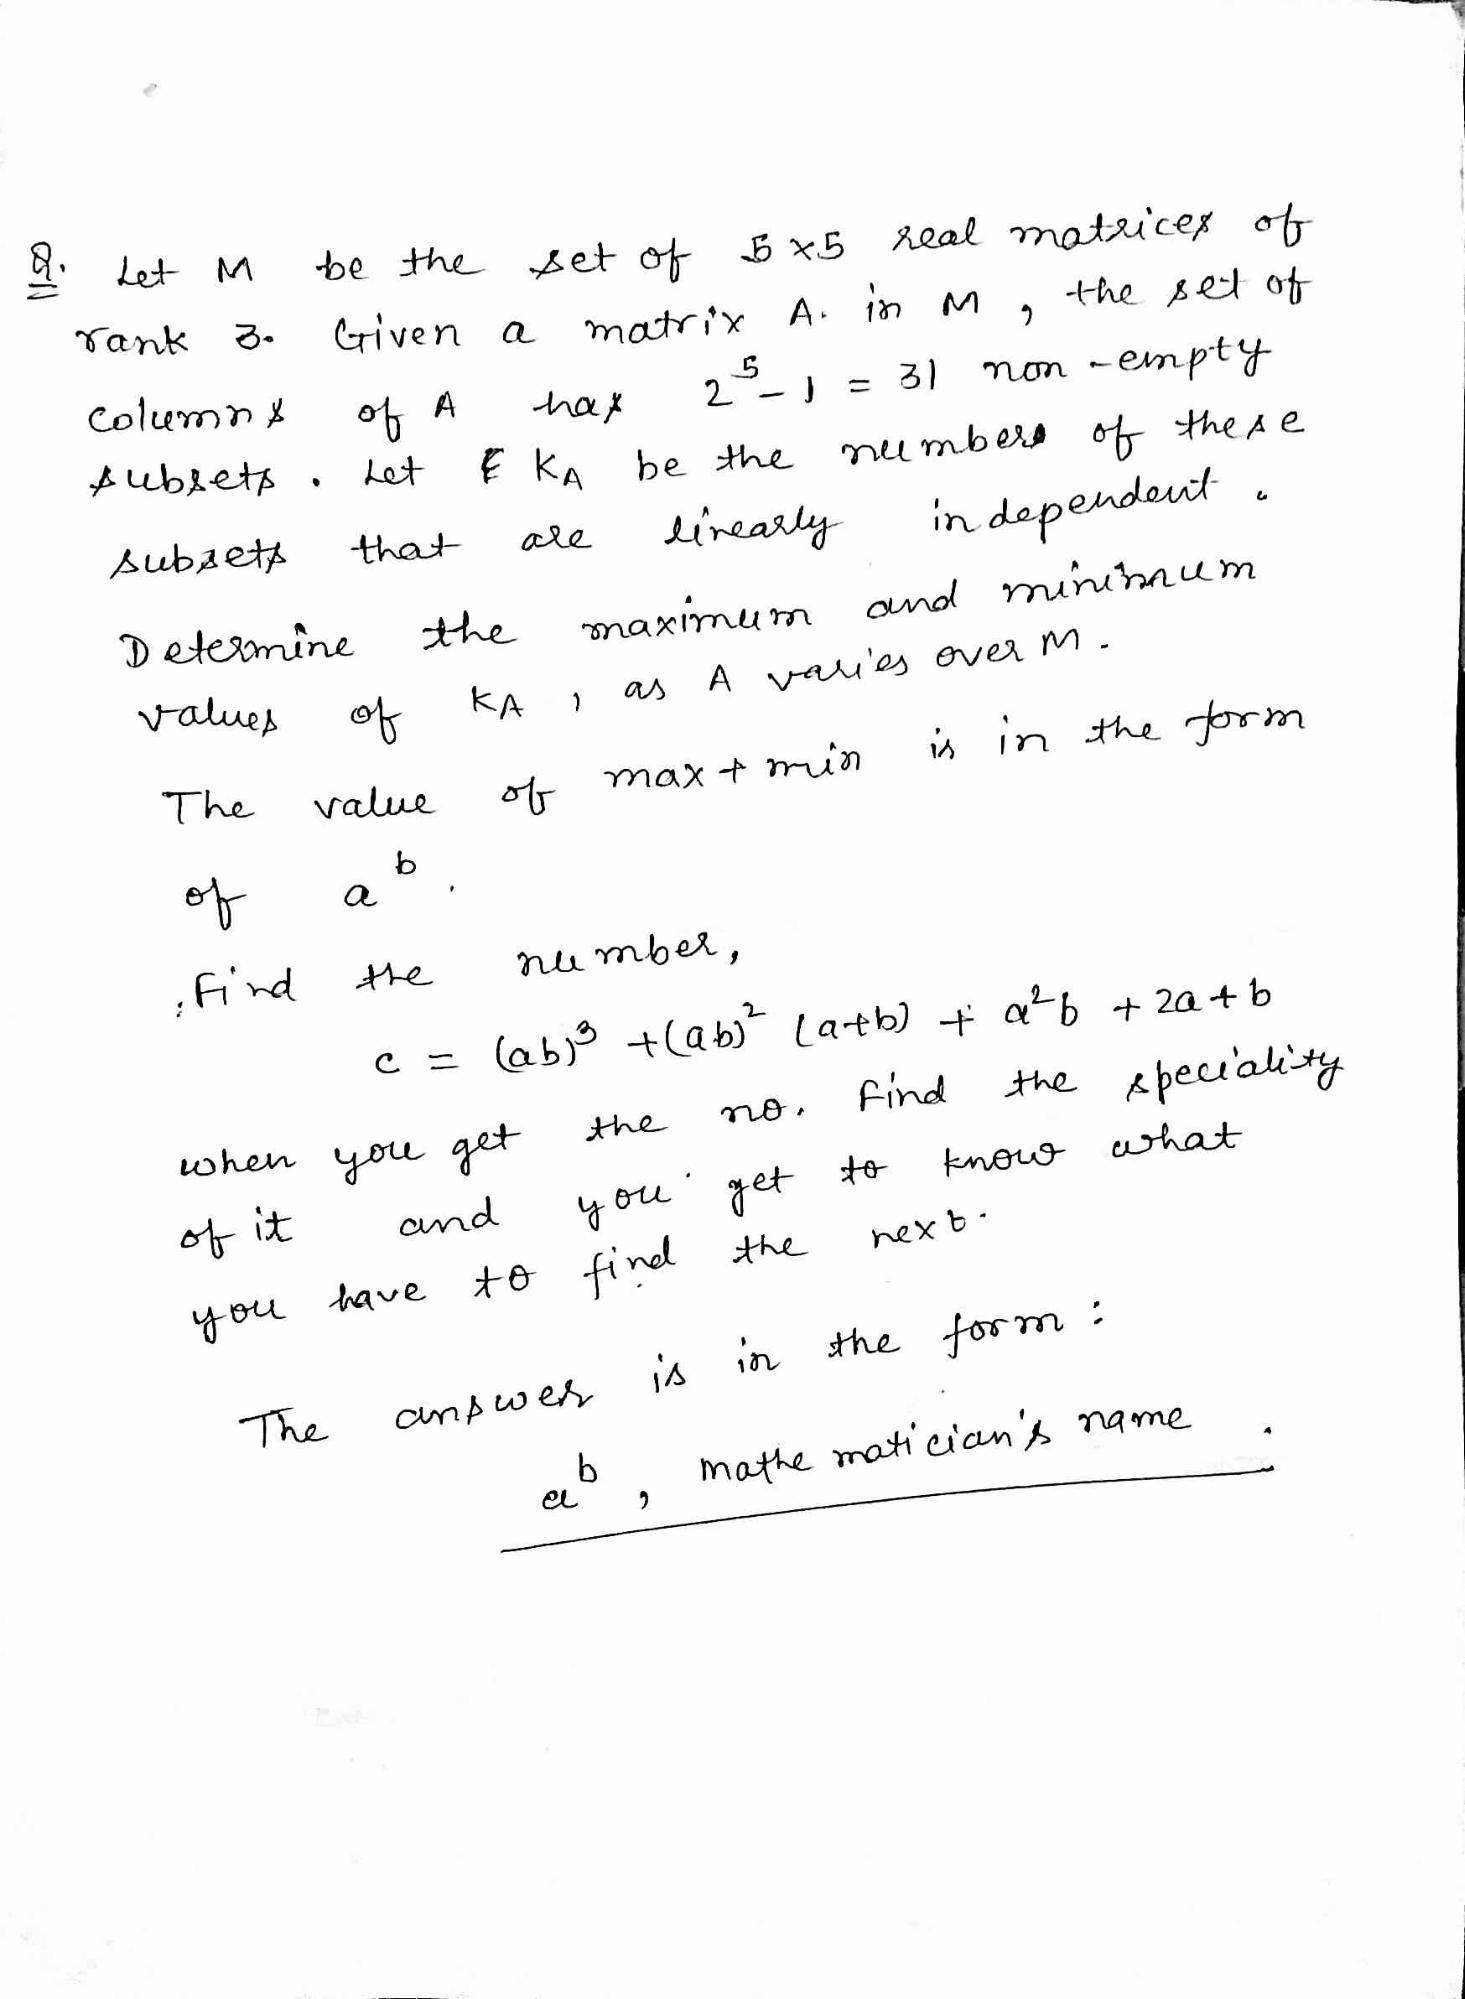 Q. Let M be the set of 5x5 real matrices of
rank 3. Given a matrix A. in M, the set of
columns of A has 2^5 - 1 = 31 non-empty
subsets. Let K_A be the numbers of these
subsets that are linearly independent.
Determine the maximum and minimum
values of K_A, as A varies over M.
The value of max + min is in the form
of a^b.
Find the number,
c = (ab)^3 + (ab)^2 (a+b) + a^2b + 2a + b
when you get the no. Find the speciality
of it and you get to know what
you have to find the next.
The answer is in the form:
a^b, mathematician's name.